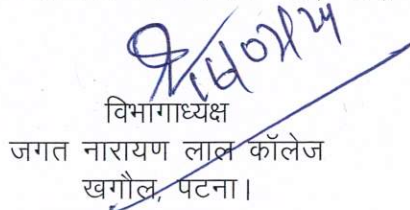 विभागाध्यक्ष
जगत नारायण लाल कॉलेज
खगौल, पटना।